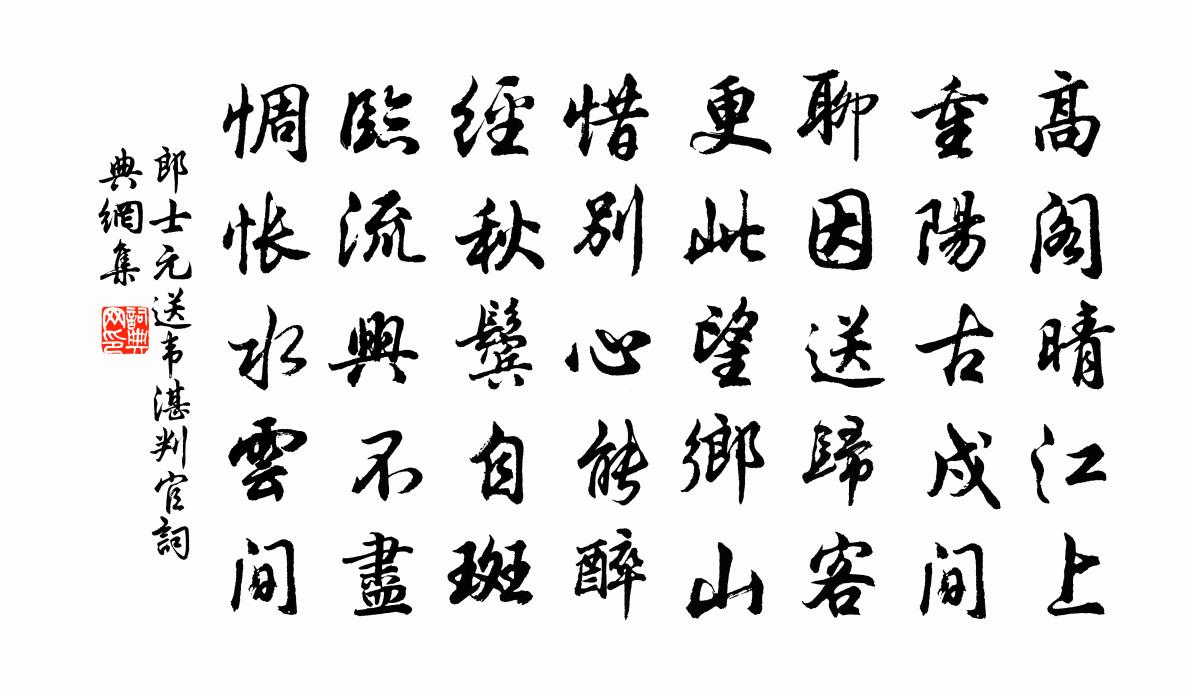 高閣晴江上
重陽古戍間
聊因送歸客
更此望鄉山
惜別心能醉
經秋鬢自斑
臨流興不盡
惆悵水雲間
郎士元送韦湛判官詞
典網集
詞典
网印